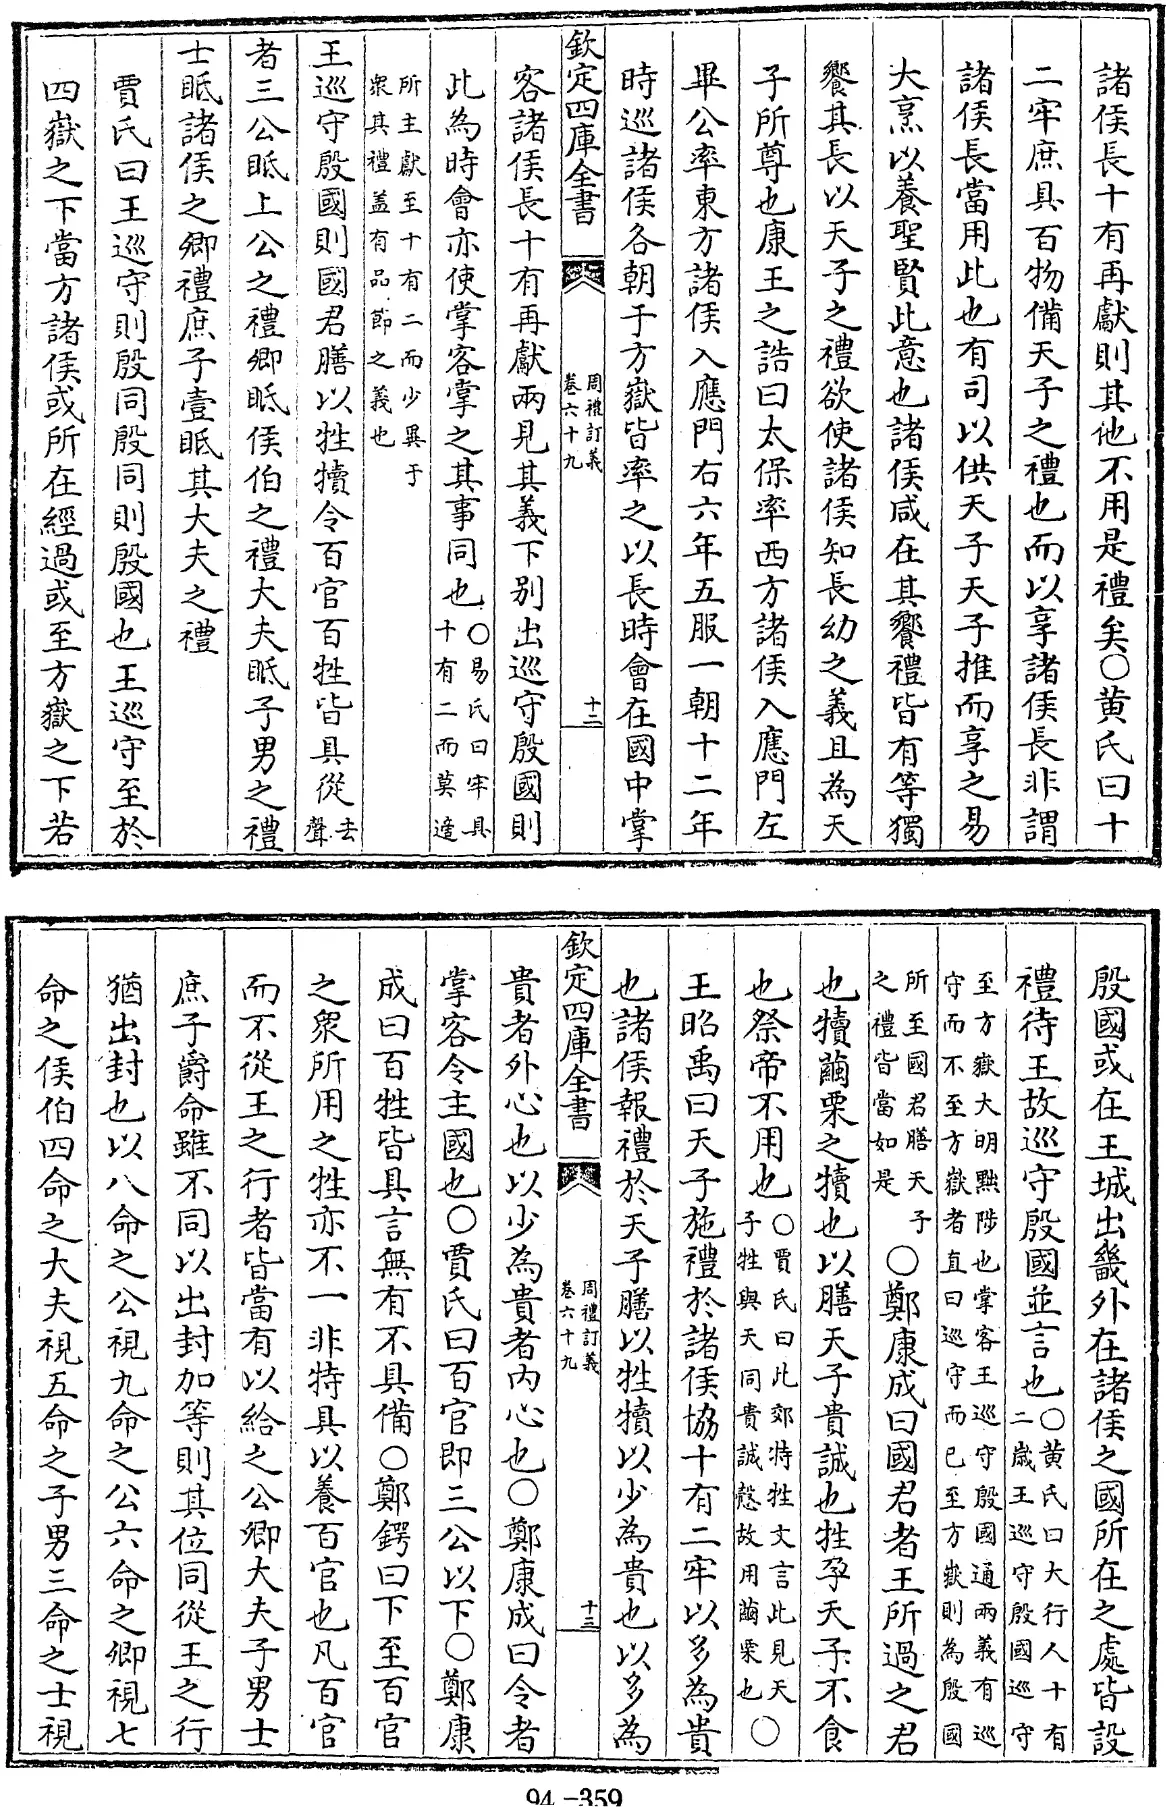 諸侯長十有再獻則其他不用是禮矣○黃氏曰十
二牢庶具百物備天子之禮也而以享諸侯長非謂
諸侯長當用此也有司以供天子天子推而享之易
大烹以養聖賢此意也諸侯咸在其饗禮皆有等獨
饗其長以天子之禮欲使諸侯知長幼之義且為天
子所尊也康王之誥曰太保率西方諸侯入應門左
畢公率東方諸侯入應門右六年五服一朝十二年
時巡諸侯各朝于方嶽皆率之以長時會在國中掌
欽定四庫全書
周禮訂義
卷六十九
十二
客諸侯長十有再獻兩見其義下別出巡守殷國則
此為時會亦使掌客掌之其事同也○易氏曰牢具
十有二而莫適
所主獻至十有二而少異于
衆其禮蓋有品節之義也
王巡守殷國則國君膳以牲犢令百官百牲皆具從去
聲
者三公眡上公之禮卿眡侯伯之禮大夫眡子男之禮
士眡諸侯之卿禮庶子壹眡其大夫之禮
賈氏曰王巡守則殷同殷同則殷國也王巡守至於
四嶽之下當方諸侯或所在經過或至方嶽之下若
殷國或在王城出畿外在諸侯之國所在之處皆設
禮待王故巡守殷國並言也○黃氏曰大行人十有
二歲王巡守殷國巡守
至方嶽大明黜陟也掌客王巡守殷國通兩義有巡
守而不至方嶽者直曰巡守而已至方嶽則為殷國
所至國君膳天子
之禮皆當如是
○鄭康成曰國君者王所過之君
也犢繭栗之犢也以膳天子貴誠也牲孕天子不食
也祭帝不用也○賈氏曰此郊特牲文言此見天
子牲與天同貴誠慤故用繭栗也○
王昭禹曰天子施禮於諸侯協十有二牢以多為貴
也諸侯報禮於天子膳以牲犢以少為貴也以多為
欽定四庫全書
周禮訂義
卷六十九
十三
貴者外心也以少為貴者內心也○鄭康成曰令者
掌客令主國也○賈氏曰百官即三公以下○鄭康
成曰百牲皆具言無有不具備○鄭鍔曰下至百官
之衆所用之牲亦不一非特具以養百官也凡百官
而不從王之行者皆當有以給之公卿大夫子男士
庶子爵命雖不同以出封加等則其位同從王之行
猶出封也以八命之公視九命之公六命之卿視七
命之侯伯四命之大夫視五命之子男三命之士視
94-359